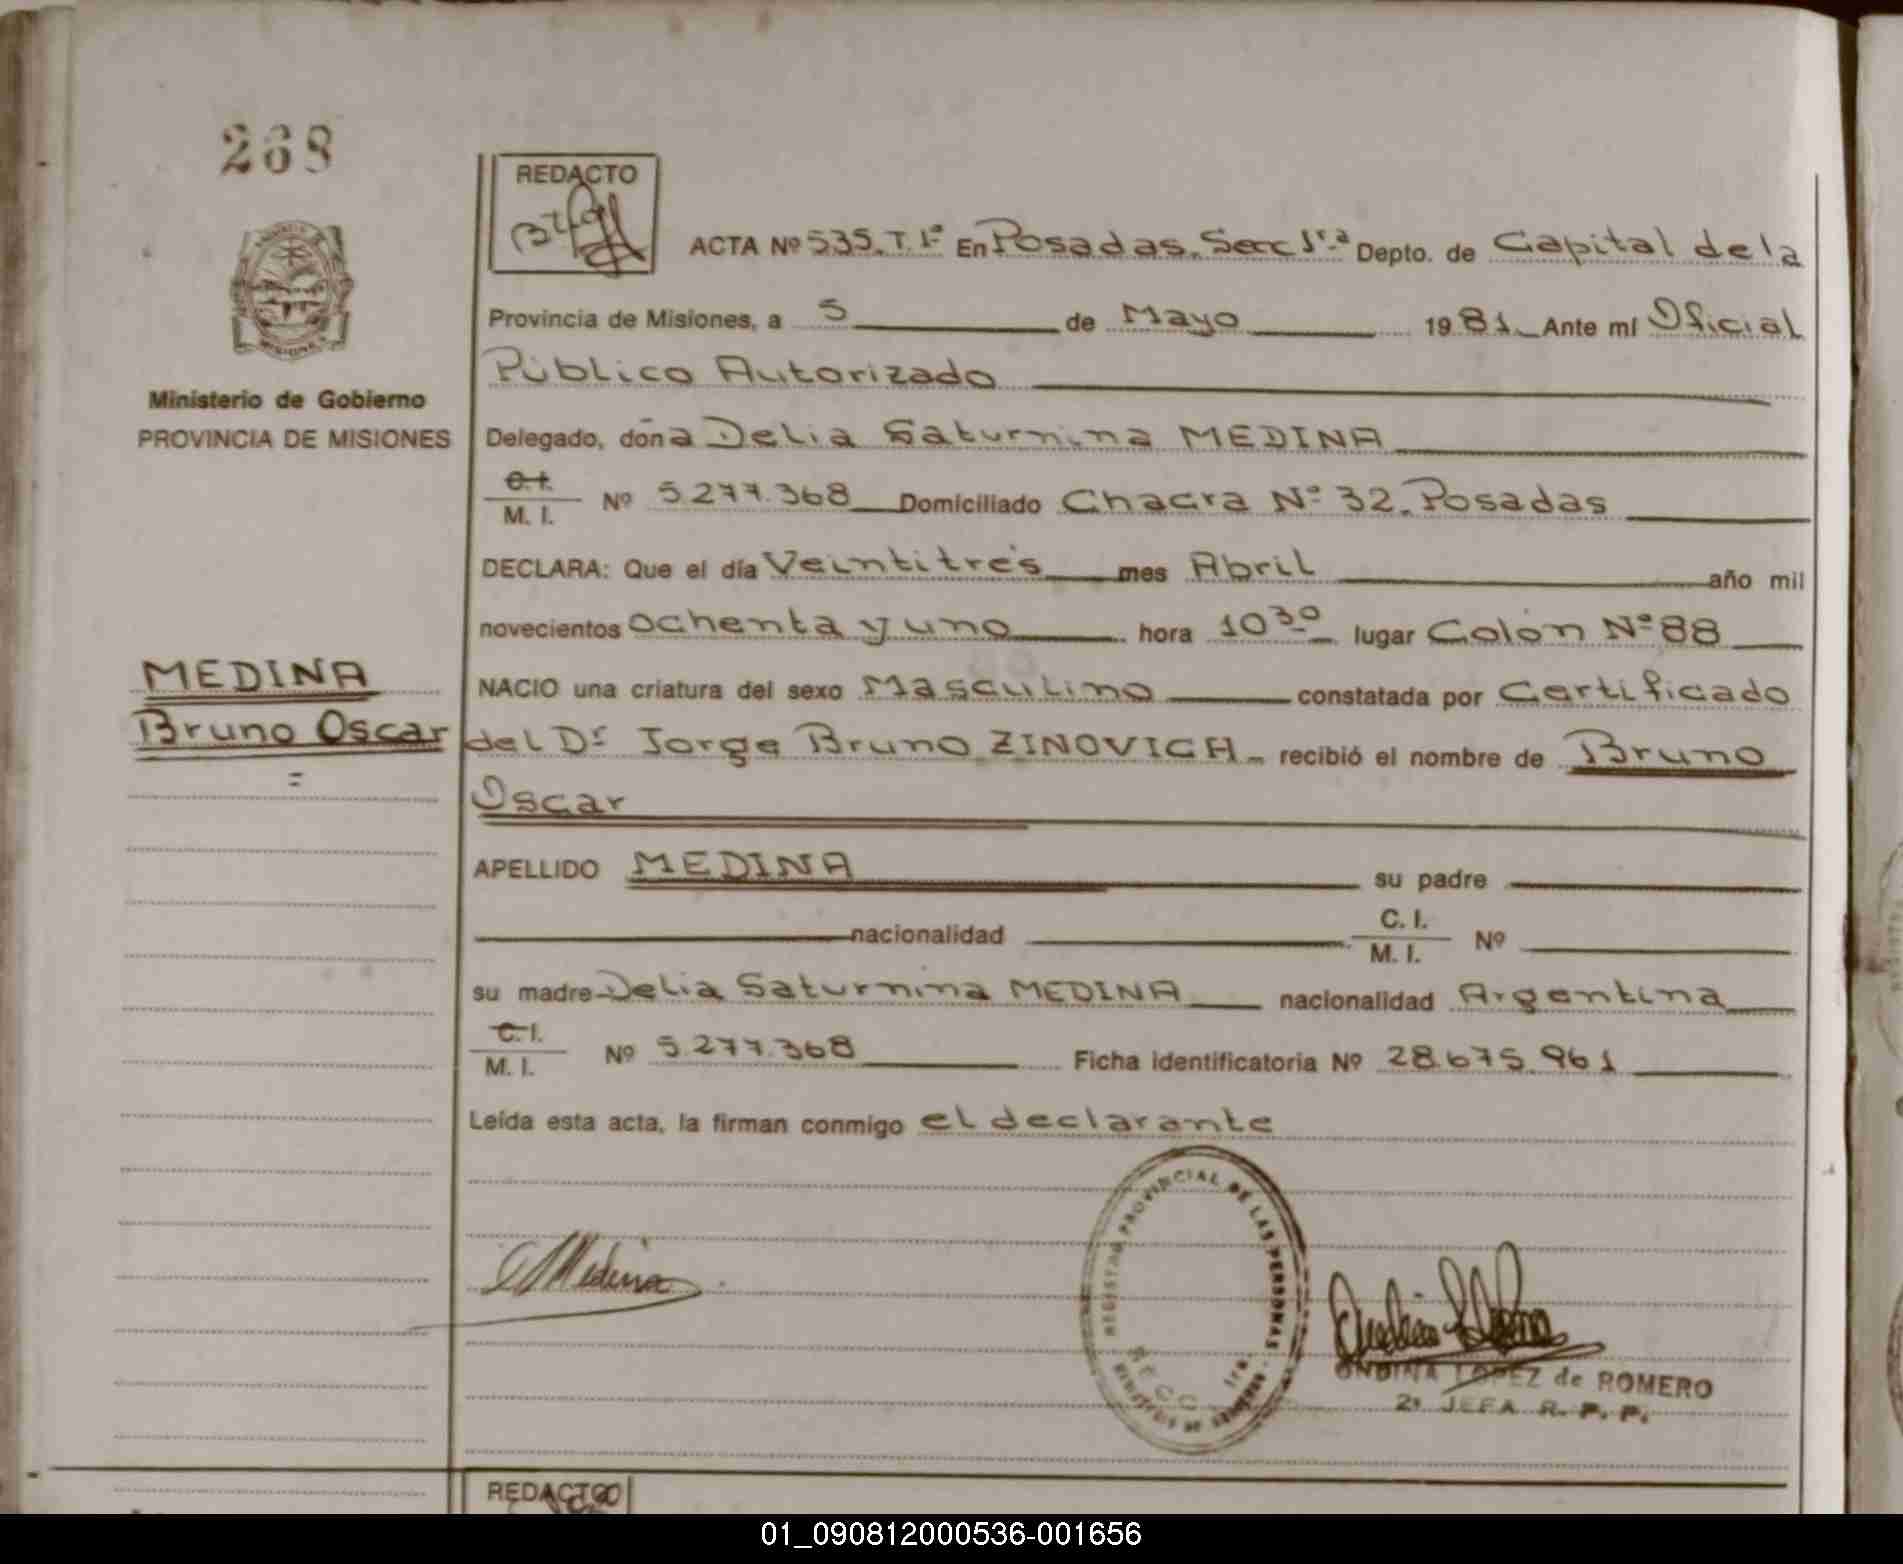 268
REDACTO
ACTA Nº 535. T. 1º En Posadas. Secc 1ra Depto. de Capital de la
Provincia de Misiones, a 5 de Mayo 1981 Ante mí Oficial
Público Autorizado
Ministerio de Gobierno
PROVINCIA DE MISIONES
Delegado, doña Delia Saturnina MEDINA
C.I.
M. I. Nº 5.277.368 Domiciliado Chacra Nº 32. Posadas
DECLARA: Que el día Veintitrés mes Abril año mil
novecientos ochenta y uno hora 10 30 lugar Colón Nº 88
MEDINA
NACIO una criatura del sexo Masculino constatada por Certificado
Bruno Oscar
del Dr Jorge Bruno ZINOVICH recibió el nombre de Bruno
Oscar
APELLIDO MEDINA su padre
nacionalidad C. I.
M. I. Nº
su madre Delia Saturnina MEDINA nacionalidad Argentina
C. I.
M. I. Nº 5.277.368 Ficha identificatoria Nº 28.675.961
Leída esta acta, la firman conmigo el declarante
Medina
REGISTRO PROVINCIAL DE LAS PERSONAS
SECC. 1ra.
ONDINA LOPEZ de ROMERO
2ª JEFA R. P. P.
REDACTO
01_090812000536-001656